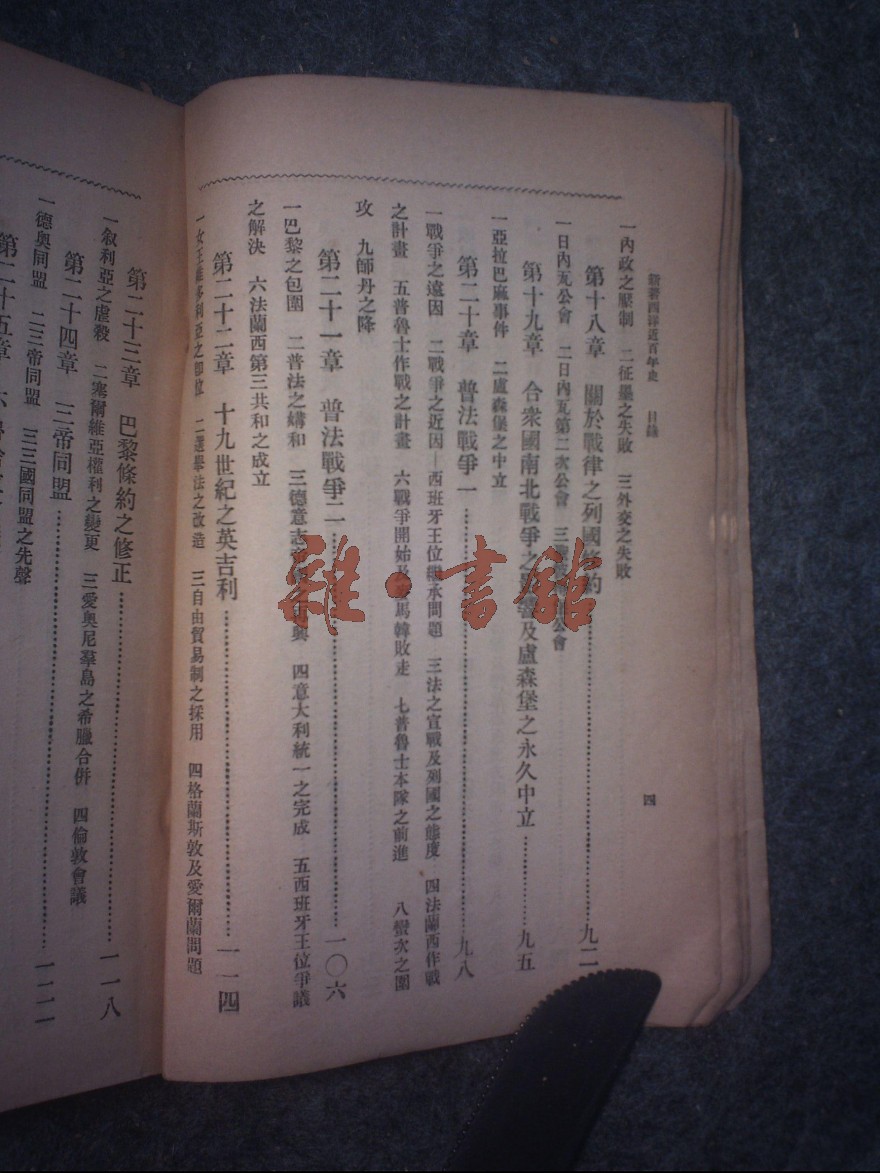 新著西洋近百年史　目錄
四
一內政之壓制　二征墨之失敗　三外交之失敗
第十八章　關於戰律之列國條約……九二
一日內瓦公會　二日內瓦第二次公會　三 公會
第十九章　合衆國南北戰爭之影響及盧森堡之永久中立……九五
一亞拉巴麻事件　二盧森堡之中立
第二十章　普法戰爭一……九八
一戰爭之遠因　二戰爭之近因—西班牙王位繼承問題　三法之宣戰及列國之態度　四法蘭西作戰
之計畫　五普魯士作戰之計畫　六戰爭開始及 馬韓敗走　七普魯士本隊之前進　八蠻次之圍
攻　九師丹之降
第二十一章　普法戰爭二……一〇六
一巴黎之包圍　二普法之媾和　三德意志 之再興　四意大利統一之完成　五西班牙王位爭議
之解決　六法蘭西第三共和之成立
第二十二章　十九世紀之英吉利……一一四
一女王維多利亞之卽位　二選舉法之改造　三自由貿易制之採用　四格蘭斯敦及愛爾蘭問題
第二十三章　巴黎條約之修正……一一八
一敍利亞之虐殺　二塞爾維亞權利之變更　三愛奧尼羣島之希臘合併　四倫敦會議
第二十四章　三帝同盟……一二一
一德奧同盟　二三帝同盟　三三國同盟之先聲
第二十五章
雜·書館